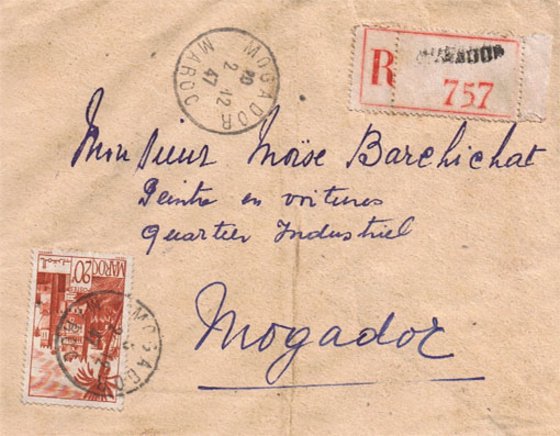 MOGADOR
20 12
2 47
MAROC
R
MOGADOR
757
Monsieur Moïse Barchichat
Peintre en voitures
Quartier Industriel
Mogador
MAROC 20F
POSTES
MOGADOR
MAROC